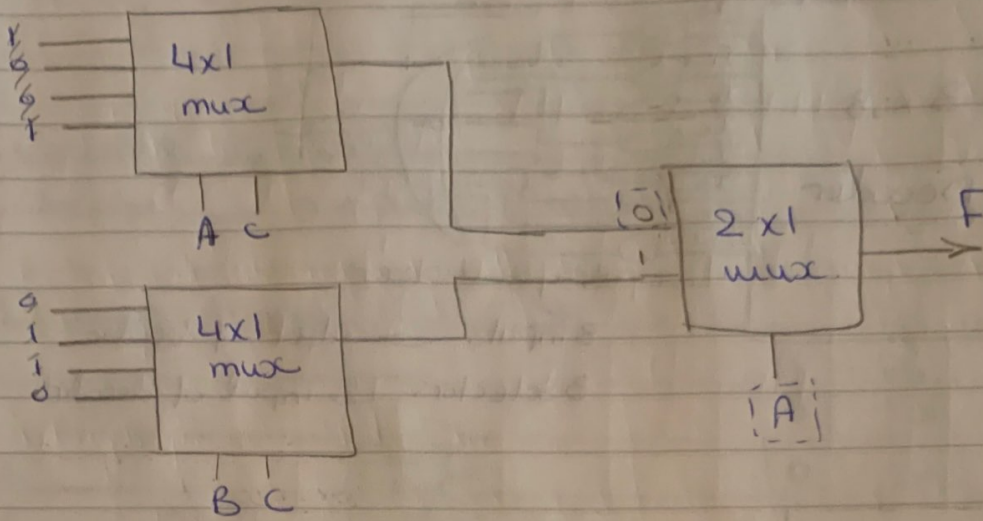 1
0
0
1
4x1
mux
A C
0
1
1
0
4x1
mux
B C
0
1
2x1
mux
A
F